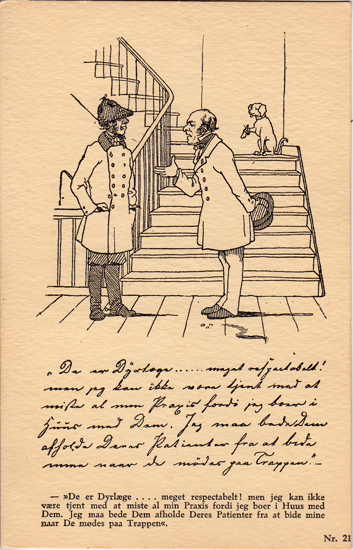 „De er Dyrlæge ...... meget respectabelt!
men jeg kan ikke være tjent med at
miste al min Praxis fordi jeg boer i
Huus med Dem. Jeg maa bede Dem
afholde Deres Patienter fra at bide
mine naar de mødes paa Trappen". —
— »De er Dyrlæge .... meget respectabelt! men jeg kan ikke
være tjent med at miste al min Praxis fordi jeg boer i Huus med
Dem. Jeg maa bede Dem afholde Deres Patienter fra at bide mine
naar De mødes paa Trappen«.
Nr. 21